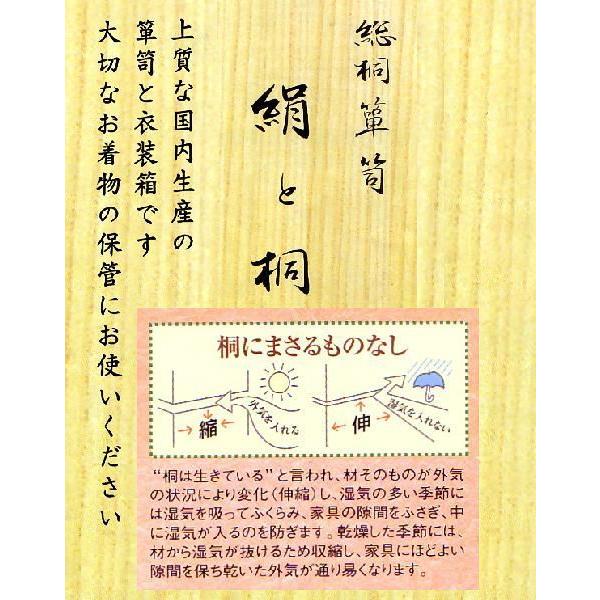 総桐箪笥
絹と桐
上質な国内生産の
箪笥と衣装箱です
大切なお着物の保管にお使いください
桐にまさるものなし
縮
外気を入れる
伸
湿気を入れない
“桐は生きている”と言われ、材そのものが外気
の状況により変化(伸縮)し、湿気の多い季節に
は湿気を吸ってふくらみ、家具の隙間をふさぎ、中
に湿気が入るのを防ぎます。乾燥した季節には、
材から湿気が抜けるため収縮し、家具にほどよい
隙間を保ち乾いた外気が通り易くなります。